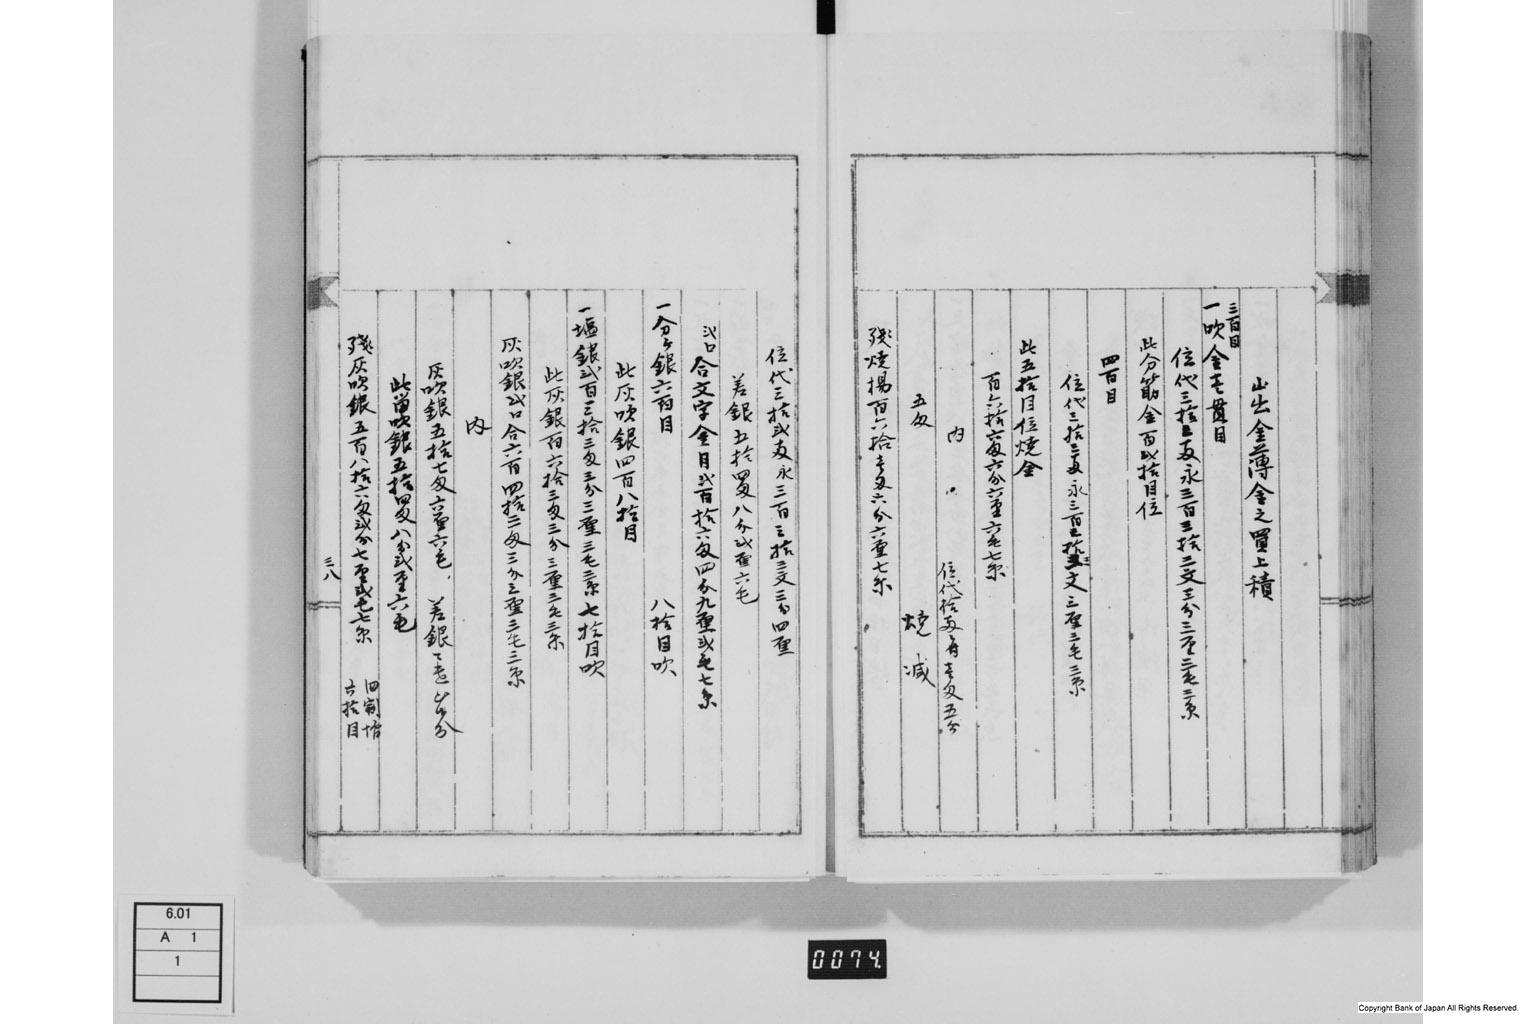 山出金薄金之買上積
三百目
一吹金壱貫目
位代三拾三両永三百三拾三文三分三厘三毛三糸
此分筋金百弐拾目位
四百目
位代三拾三両永三百三拾三文三厘三毛三糸
此五拾目位焼金
百六拾六匁六分六厘六毛七糸
内
位代拾両ニ付壱匁五分
五匁
焼減
残焼揚百六拾壱匁六分六厘七糸
位代三拾弐両永三百三拾三文三分四厘
差銀五拾四匁八分弐厘六毛
弐口合文字金目弐百拾六匁四分九厘弐毛七糸
一分ケ銀六百目
八拾目吹
此灰吹銀四百八拾目
一塩銀弐百三拾三匁三分三厘三毛三糸七拾目吹
此灰銀百六拾三匁三分三厘三毛三糸
灰吹銀弐口合六百四拾三匁三分三厘三毛三糸
内
灰吹銀五拾七匁六厘六毛
差銀
此留吹銀五拾四匁八分弐厘六毛
残灰吹銀五百八拾六匁弐分七厘弐毛七糸
六拾目
三八
6.01
A 1
1
0074.
Copyright Bank of Japan All Rights Reserved.